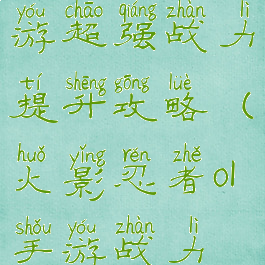 yóu chāo qiáng zhàn lì
游超强战力
tí shēng gōng lüè
提升攻略(
huǒ yǐng rěn zhě
火影忍者ol
shǒu yóu zhàn lì
手游战力